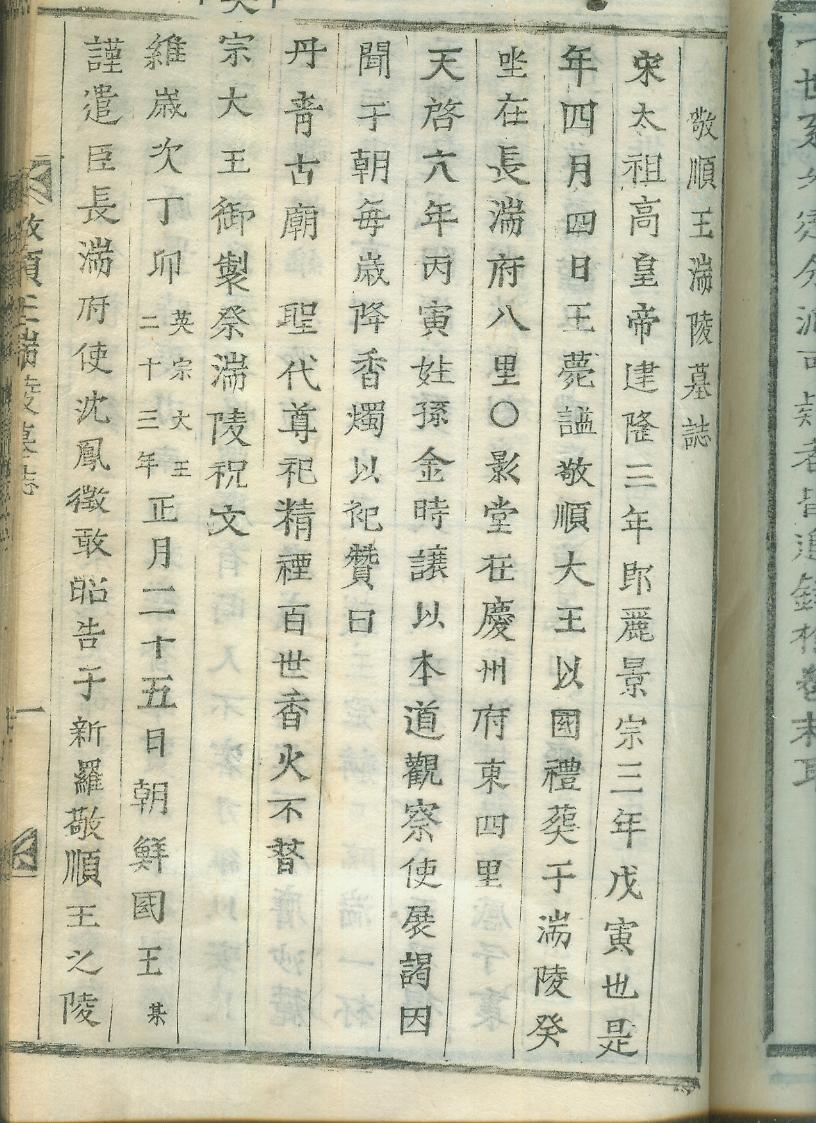 敬順王湍陵墓誌
宋太祖高皇帝建隆三年郎麗景宗三年戊寅也是
年四月四日王薨謚敬順大王以國禮葬于湍陵癸
坐在長湍府八里〇影堂在慶州府東四里
天啓六年丙寅姓孫金時讓以本道觀察使展謁因
聞于朝每歲降香燭以祀贊曰
丹靑古廟 聖代尊祀精禋百世香火不替
宗大王御製祭湍陵祝文
維歲次丁卯英宗大王二十三年正月二十五日朝鮮國王某
謹遣臣長湍府使沈鳳徵敢昭告于新羅敬順王之陵
敬順王湍陵墓誌
一